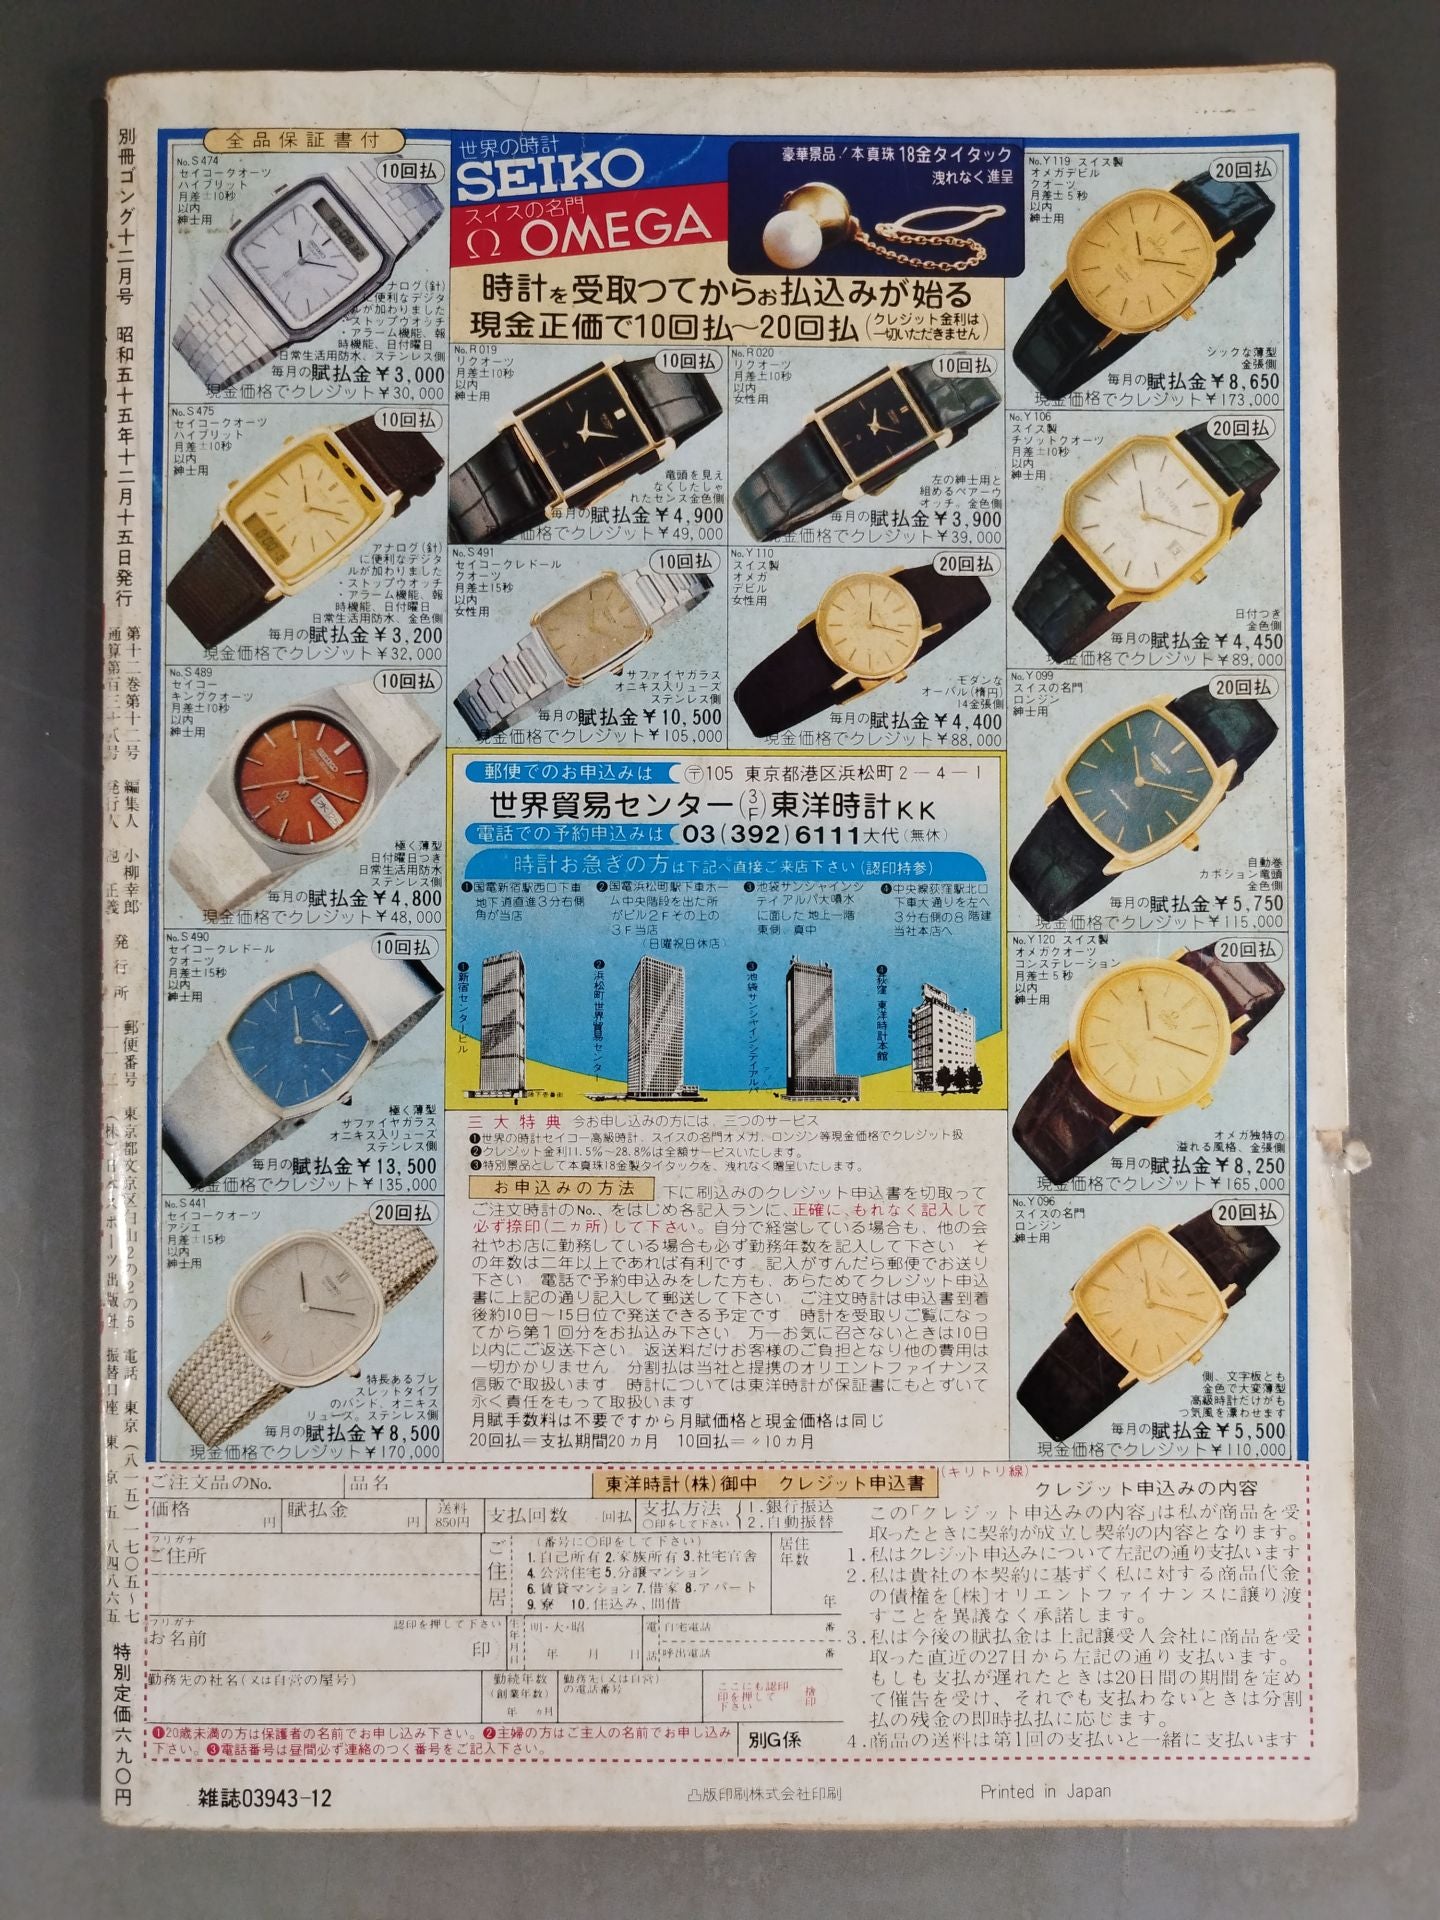 全品保証書付
世界の時計
SEIKO
スイスの名門
Ω OMEGA
豪華景品!本真珠18金タイタック
洩れなく進呈
時計を受取つてからお払込みが始る
現金正価で10回払〜20回払(クレジット金利は一切いただきません)
No.S474
セイコークオーツ
ハイブリット
月差±10秒
以内
紳士用
10回払
アナログ(針)
に便利なデジタ
ルが加わりました
・ストップウオッチ
・アラーム機能、報
時機能、日付曜日
日常生活用防水、ステンレス側
毎月の賦払金¥3,000
現金価格でクレジット¥30,000
No.S475
セイコークオーツ
ハイブリット
月差±10秒
以内
紳士用
10回払
アナログ(針)
に便利なデジタ
ルが加わりました
・ストップウオッチ
・アラーム機能、報
時機能、日付曜日
日常生活用防水、金色側
毎月の賦払金¥3,200
現金価格でクレジット¥32,000
No.S489
セイコー
キングクオーツ
月差±10秒
以内
紳士用
10回払
極く薄型
日付曜日つき
日常生活用防水
ステンレス側
毎月の賦払金¥4,800
現金価格でクレジット¥48,000
No.S490
セイコークレドール
クオーツ
月差±15秒
以内
紳士用
10回払
極く薄型
サファイヤガラス
オニキス入リューズ
ステンレス側
毎月の賦払金¥13,500
現金価格でクレジット¥135,000
No.S441
セイコークオーツ
アシエ
月差±15秒
以内
紳士用
20回払
特長あるブレ
スレットタイプ
のバンド、オニキス
リューズ。ステンレス側
毎月の賦払金¥8,500
現金価格でクレジット¥170,000
No.R019
リクオーツ
月差±10秒
以内
紳士用
10回払
竜頭を見え
なくしたしゃ
れたセンス金色側
毎月の賦払金¥4,900
現金価格でクレジット¥49,000
No.R020
リクオーツ
月差±10秒
以内
女性用
10回払
左の紳士用と
組めるペアーウ
オッチ。金色側
毎月の賦払金¥3,900
現金価格でクレジット¥39,000
No.S491
セイコークレドール
クオーツ
月差±15秒
以内
女性用
10回払
サファイヤガラス
オニキス入リューズ
ステンレス側
毎月の賦払金¥10,500
現金価格でクレジット¥105,000
No.Y110
スイス製
オメガ
デビル
女性用
20回払
モダンな
オーバル(楕円)
14金張側
毎月の賦払金¥4,400
現金価格でクレジット¥88,000
No.Y119 スイス製
オメガデビル
クオーツ
月差±5秒
以内
紳士用
20回払
シックな薄型
金張側
毎月の賦払金¥8,650
現金価格でクレジット¥173,000
No.Y106
スイス製
チソットクオーツ
月差±10秒
以内
紳士用
20回払
日付つき
金色側
毎月の賦払金¥4,450
現金価格でクレジット¥89,000
No.Y099
スイスの名門
ロンジン
紳士用
20回払
自動巻
カボション竜頭
金色側
毎月の賦払金¥5,750
現金価格でクレジット¥115,000
No.Y120 スイス製
オメガクオーツ
コンステレーション
月差±5秒
以内
紳士用
20回払
オメガ独特の
溢れる風格、金張側
毎月の賦払金¥8,250
現金価格でクレジット¥165,000
No.Y096
スイスの名門
ロンジン
紳士用
20回払
側、文字板とも
金色で大変薄型
高級時計だけがも
つ気風を漂わせます
毎月の賦払金¥5,500
現金価格でクレジット¥110,000
郵便でのお申込みは 〒105 東京都港区浜松町2-4-1
世界貿易センター(3F)東洋時計KK
電話での予約申込みは 03(392)6111大代(無休)
時計お急ぎの方は下記へ直接ご来店下さい(認印持参)
❶国電新宿駅西口下車
地下道直進3分右側
角が当店
❷国電浜松町駅下車ホー
ム中央階段を出た所
がビル2Fその上の
3F当店
(日曜祝日休店)
❸池袋サンシャインシ
テイアルパ大噴水
に面した地上一階
東側、真中
❹中央線荻窪駅北口
下車大通りを左へ
3分右側の8階建
当社本店へ
❶新宿センタービル
❷浜松町世界貿易センター
❸池袋サンシャインシティアルパ
❹荻窪 東洋時計本館
三大特典 今お申し込みの方には、三つのサービス
❶世界の時計セイコー高級時計、スイスの名門オメガ、ロンジン等現金価格でクレジット扱
❷クレジット金利11.5%〜28.8%は全額サービスいたします。
❸特別景品として本真珠18金製タイタックを、洩れなく贈呈いたします。
お申込みの方法 下に刷込みのクレジット申込書を切取って
ご注文時計のNo.、をはじめ各記入ランに、正確に、もれなく記入して
必ず捺印(二ヵ所)して下さい。自分で経営している場合も、他の会
社やお店に勤務している場合も必ず勤務年数を記入して下さい そ
の年数は二年以上であれば有利です 記入がすんだら郵便でお送り
下さい 電話で予約申込みをした方も、あらためてクレジット申込
書に上記の通り記入して郵送して下さい ご注文時計は申込書到着
後約10日〜15日位で発送できる予定です 時計を受取りご覧になっ
てから第1回分をお払込み下さい 万一お気に召さないときは10日
以内にご返送下さい 返送料だけお客様のご負担となり他の費用は
一切かかりません 分割払は当社と提携のオリエントファイナンス
信販で取扱います 時計については東洋時計が保証書にもとずいて
永く責任をもって取扱います
月賦手数料は不要ですから月賦価格と現金価格は同じ
20回払=支払期間20ヵ月 10回払=〃10ヵ月
(キリトリ線)
ご注文品のNo.
品名
東洋時計(株)御中 クレジット申込書
価格 円
賦払金 円
送料850円
支払回数 回払
支払方法
○印をして下さい
1.銀行振込
2.自動振替
フリガナ
ご住所
ご住居
(番号に○印をして下さい)
1.自己所有 2.家族所有 3.社宅官舎
4.公営住宅 5.分譲マンション
6.賃貸マンション 7.借家 8.アパート
9.寮 10.住込み、間借
居住年数
年
フリガナ
お名前
認印を押して下さい
印
生年月日
明・大・昭
年 月 日
電話
自宅電話 番
呼出電話 番
勤務先の社名(又は自営の屋号)
勤続年数
(創業年数)
年 ヵ月
勤務先(又は自営)
の電話番号
ここにも認印
印を押して
下さい
捨印
❶20歳未満の方は保護者の名前でお申し込み下さい。❷主婦の方はご主人の名前でお申し込み
下さい。❸電話番号は昼間必ず連絡のつく番号をご記入下さい。
別G係
クレジット申込みの内容
この「クレジット申込みの内容」は私が商品を受
取ったときに契約が成立し契約の内容となります。
1.私はクレジット申込みについて左記の通り支払います
2.私は貴社の本契約に基ずく私に対する商品代金
の債権を[株]オリエントファイナンスに譲り渡
すことを異議なく承諾します。
3.私は今後の賦払金は上記譲受人会社に商品を受
取った直近の27日から左記の通り支払います。
もしも支払が遅れたときは20日間の期間を定め
て催告を受け、それでも支払わないときは分割
払の残金の即時払払に応じます。
4.商品の送料は第1回の支払いと一緒に支払います
別冊ゴング十二月号 昭和五十五年十二月十五日発行
第十二巻第十二号 編集人 小柳幸郎
通算第百三十八号 発行人 池 正義
発行所
郵便番号 東京都文京区白山2の2の6 電話 東京(八一五)一七〇五〜七
一一二 (株)日本スポーツ出版社 振替口座 東京 五 八四八六五
特別定価六九〇円
雑誌03943-12
凸版印刷株式会社印刷
Printed in Japan